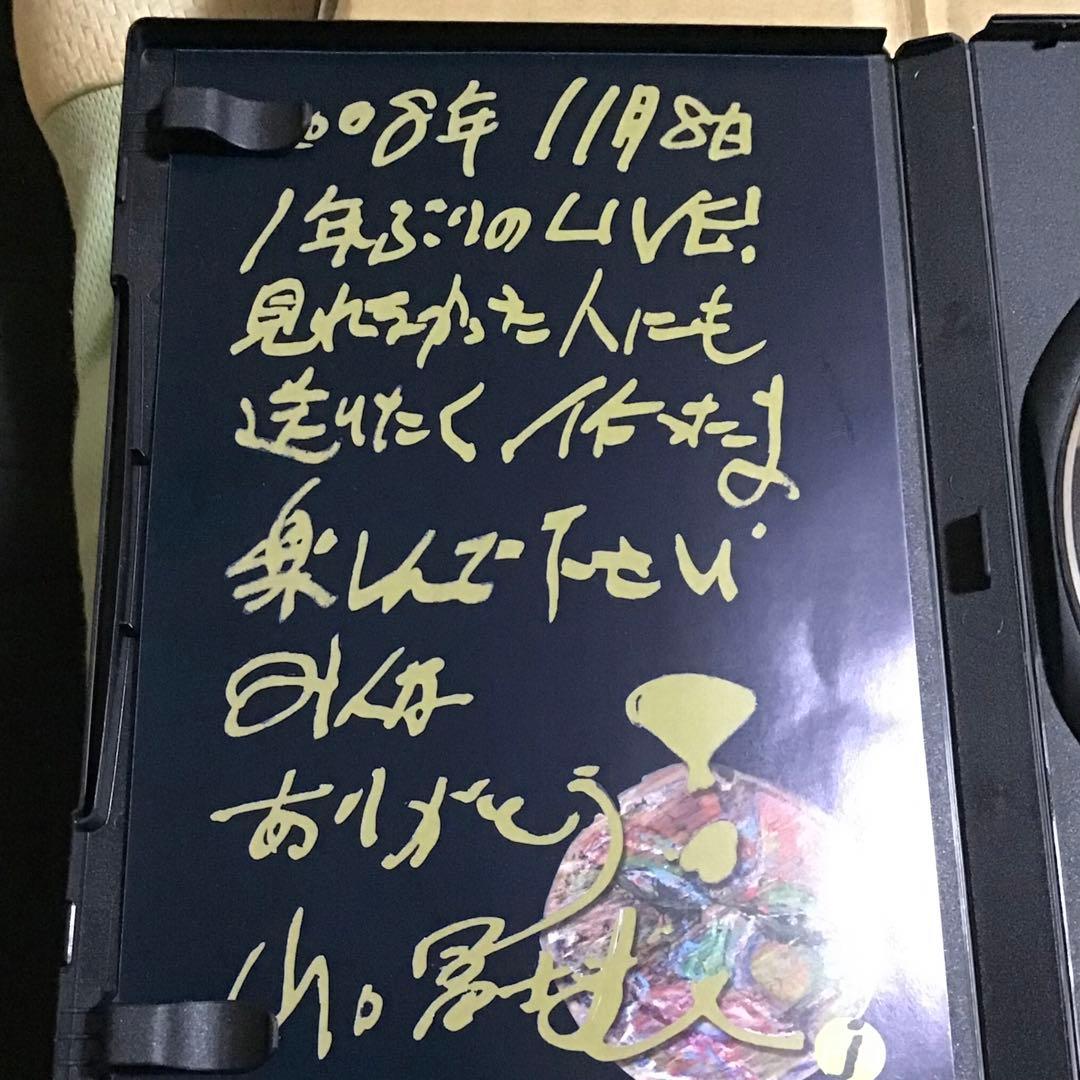 2008年 11月8日
1年ぶりのLIVE!
見れなかった人にも
送りたく 作ったよ
楽しんで下さい
みんな
ありがとう